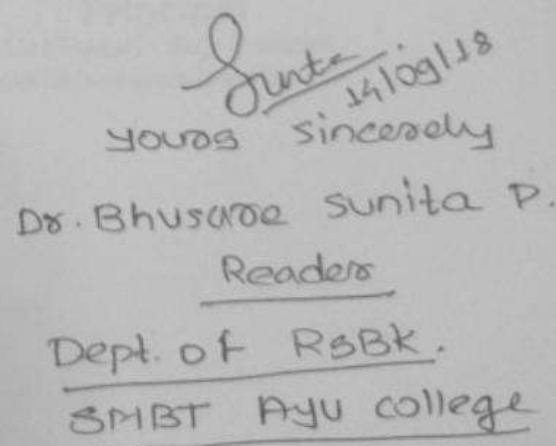 Sunita
14/09/18
yours sincerely
Dr. Bhusare Sunita P.
Reader
Dept. of RSBK.
SMBT Ayu college